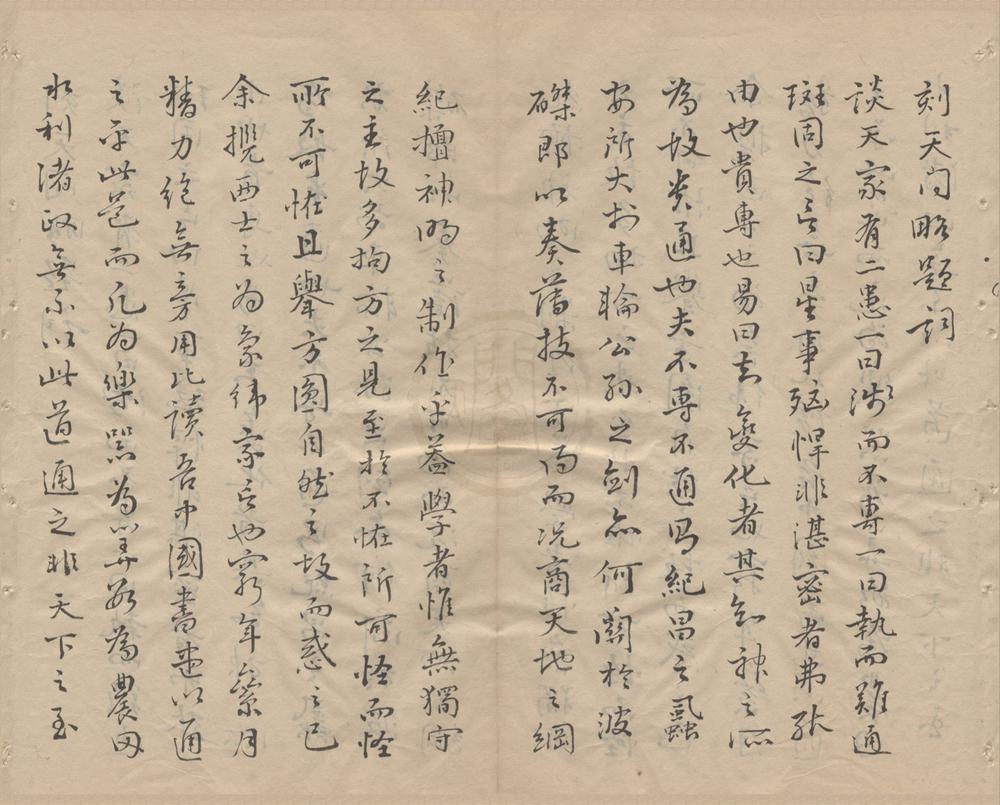 刻天問略題詞
談天家有二患一曰涉而不專一曰執而難通
班固之言曰星事殈悍非湛密者弗能
由也貴專也易曰知變化者其知神之所
為故貴通也夫不專不通焉紀昌之虱蟲
安所大于車輪公孫之劍亦何關於波
磔即以奏薄技不可得而況商天地之綱
紀擅神明之制作乎蓋學者惟無獨守
之主故多拘方之見至於不恠所可怪而怪
所不可恠且舉方圓自然之故而惑之已
余攬西士之為象緯家言也窮年絫月
精力絕無旁用比讀吾中國書遂以通
之乎此邑而凡為樂器為算數為農田
水利諸政無不以此道通之非天下之至